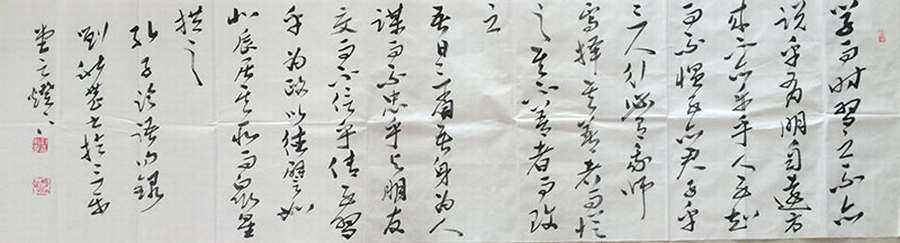 學而时習之不亦
说乎有朋自遠方
来不亦乐乎人不知
而不愠不亦君子乎
三人行必有我师
焉择其善者而从
之其不善者而改
之
吾日三省吾身为人
谋而不忠乎与朋友
交而不信乎传不習
乎为政以德譬如
北辰居其所而众星
拱之
孔子论语句録
书於